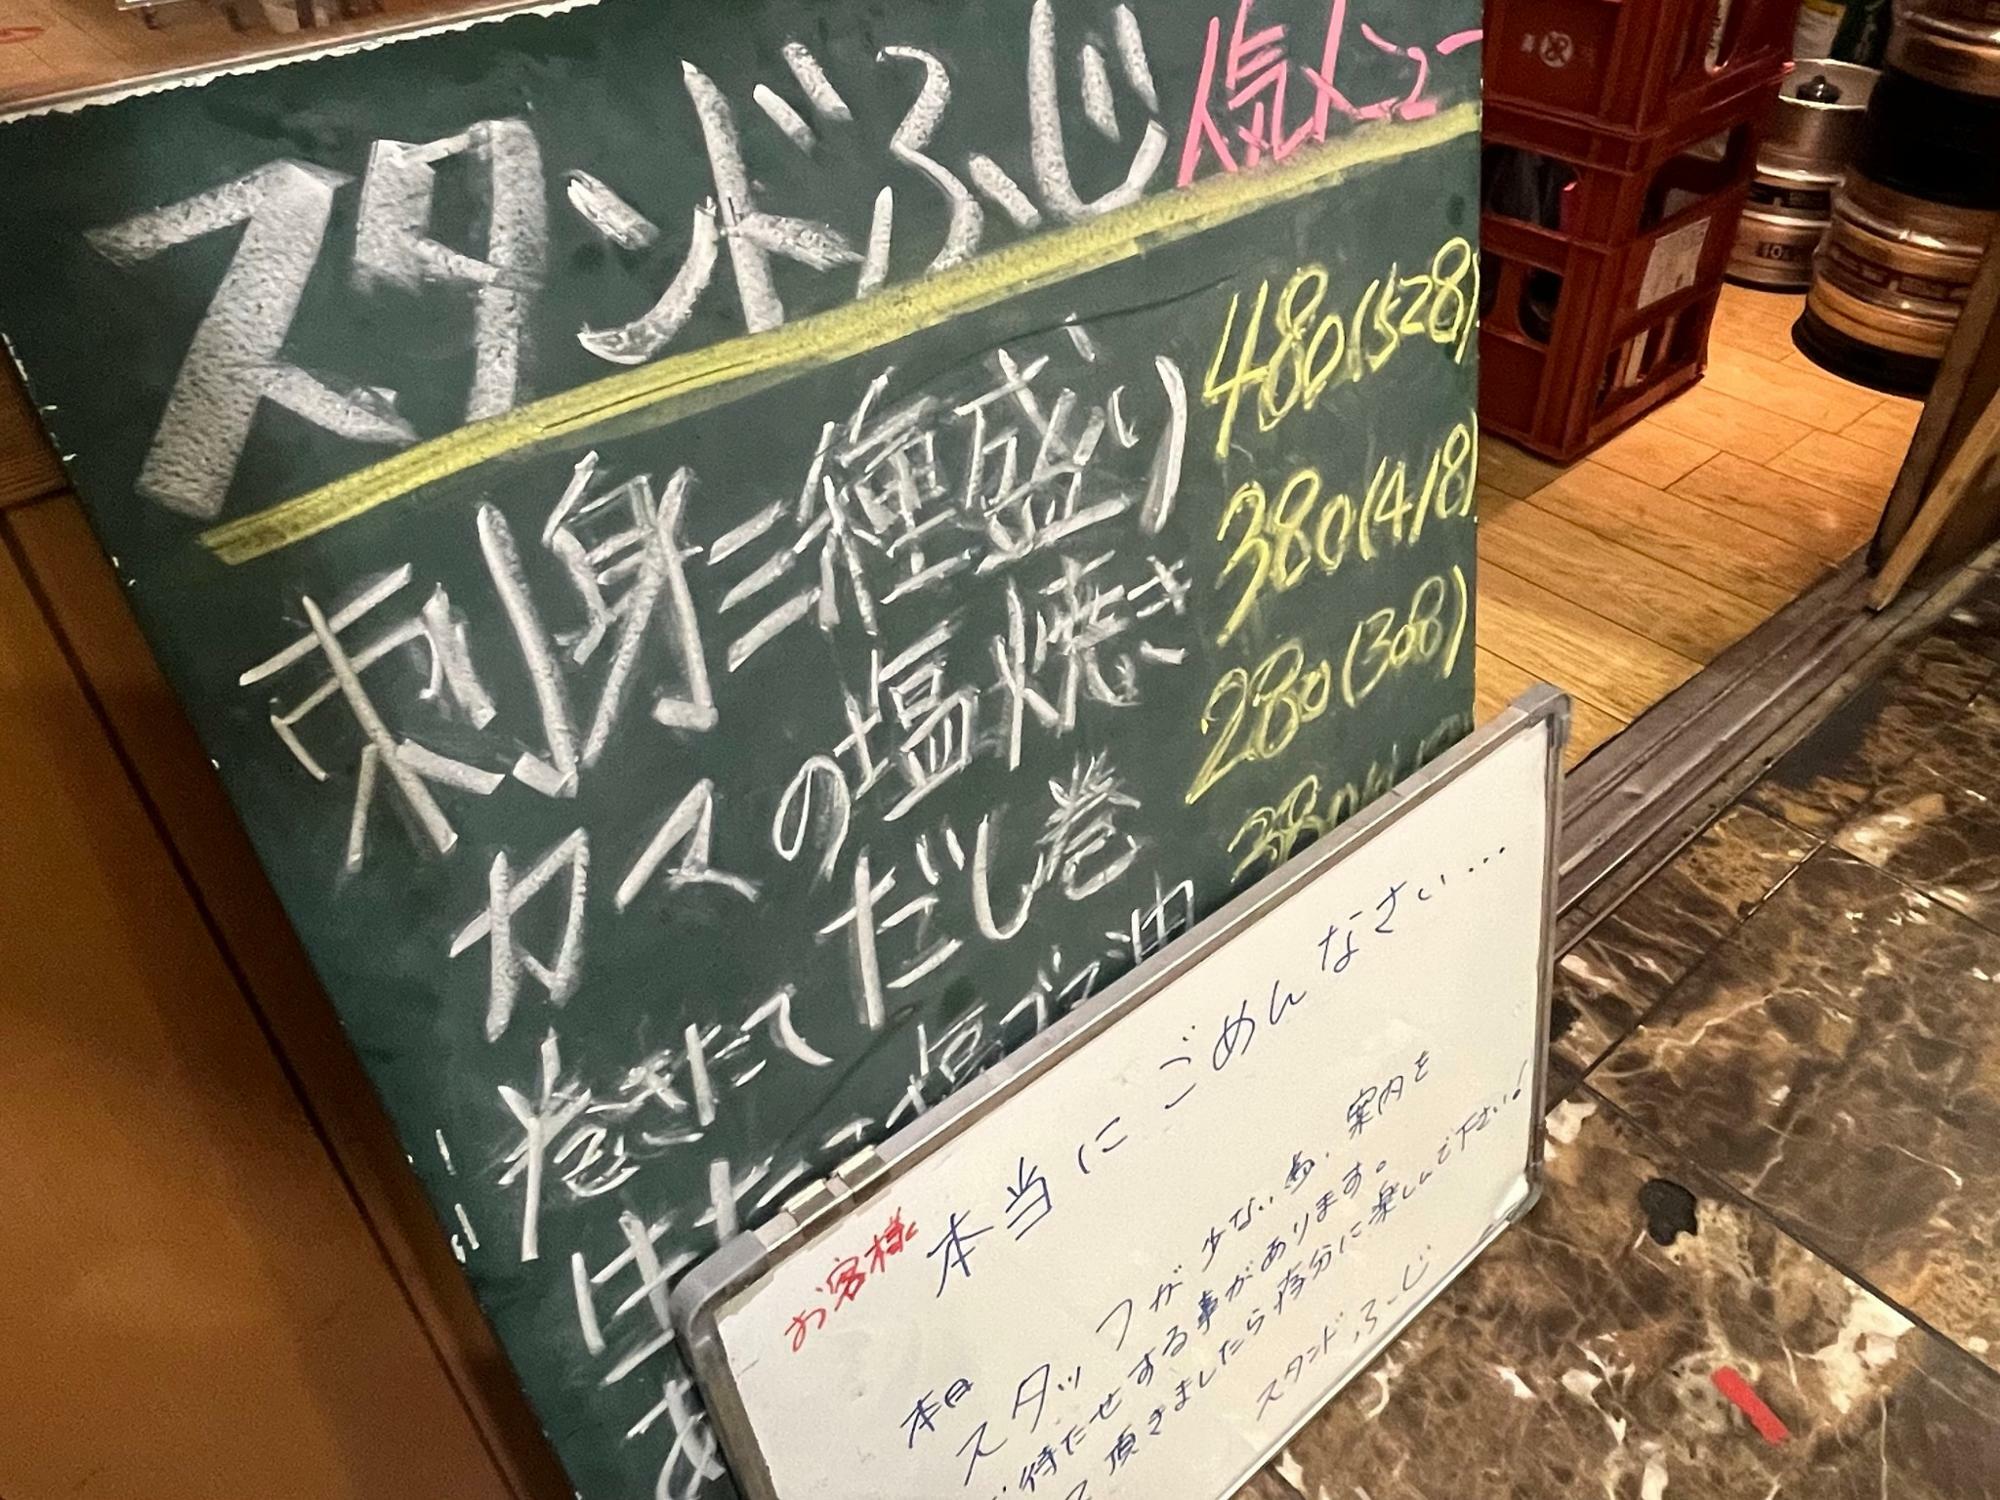 スタンドふじ 人気メニュー
刺身二種盛り 480(528)
カマの塩焼き 380(418)
巻きたて だし巻 280(308)
塩ゴマ油 380
お客様
本当にごめんなさい...
本日
スタッフが少ない為、案内を
お待たせする事があります。
頂きましたら存分に楽しんで下さい!
スタンドふーじ